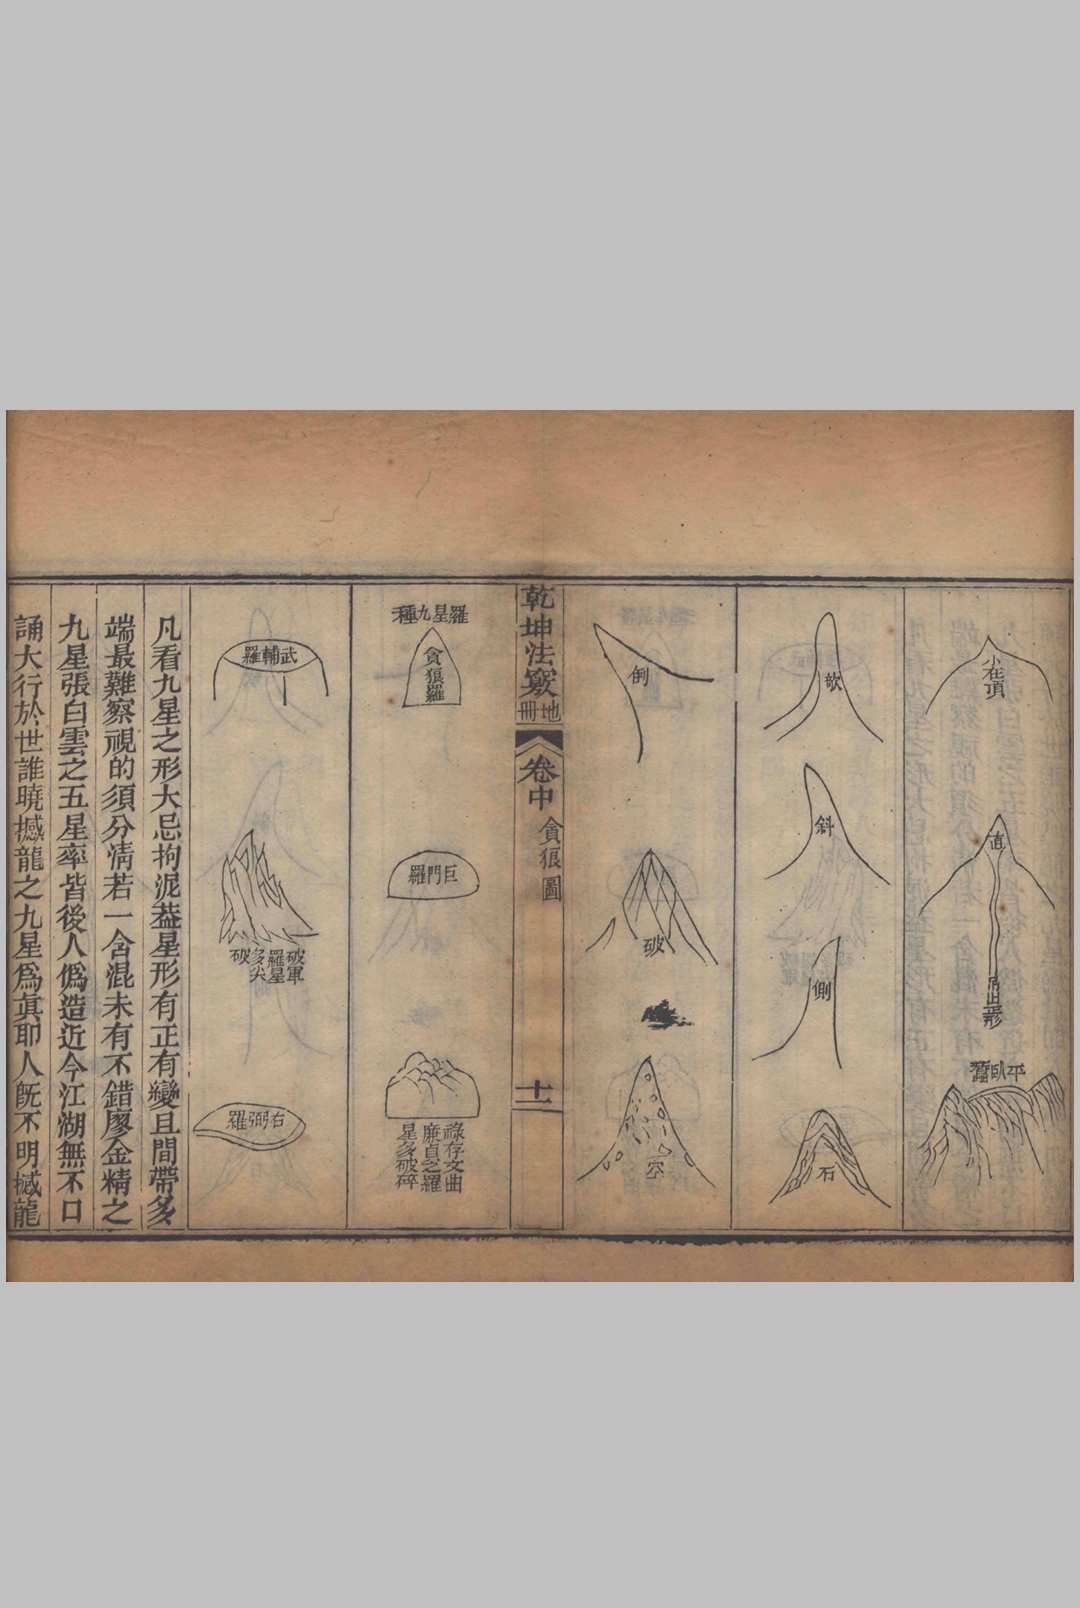 小在頂
直
吊山形
平臥蠶
欹
斜
側
石
倒
破
空
乾坤法竅
地冊
卷中
貪狼圖
十一
羅星九種
貪狼羅
巨門羅
祿存文曲
廉貞之羅
星多破碎
武輔羅
破軍
羅星
多尖
破
右弼羅
凡看九星之形大忌拘泥葢星形有正有變且間帶多
端最難察視的須分清若一含混未有不錯廖金精之
九星張白雲之五星率皆後人僞造近今江湖無不口
誦大行於世誰曉撼龍之九星爲眞耶人旣不明撼龍